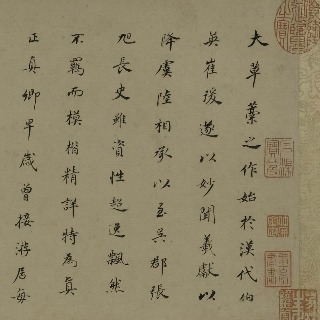 大草藁之作始於漢代伯
英崔瑗遂以妙聞羲獻以
降虞陸相承以至吳郡張
旭長史雖資性超逸飄然
不羈而模楷精詳特為真
正真卿早歲曾接游居每